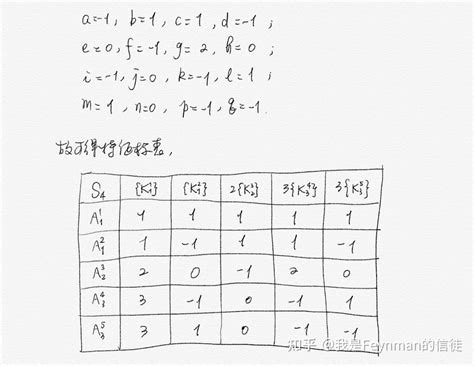 a=-1, b=1, c=1, d=-1;
e=0, f=-1, g=2, h=0;
i=-1, j=0, k=-1, l=1;
m=1, n=0, p=-1, q=-1.
故可得特征标表,
S₄ {K₁¹} {K₁²} 2{K₂³} 3{K₃⁴} 3{K₃⁵}
A₁¹ 1 1 1 1 1
A₁² 1 -1 1 1 -1
A₂³ 2 0 -1 2 0
A₃⁴ 3 -1 0 -1 1
A₃⁵ 3 1 0 -1 -1
知乎 @我是Feynman的信徒